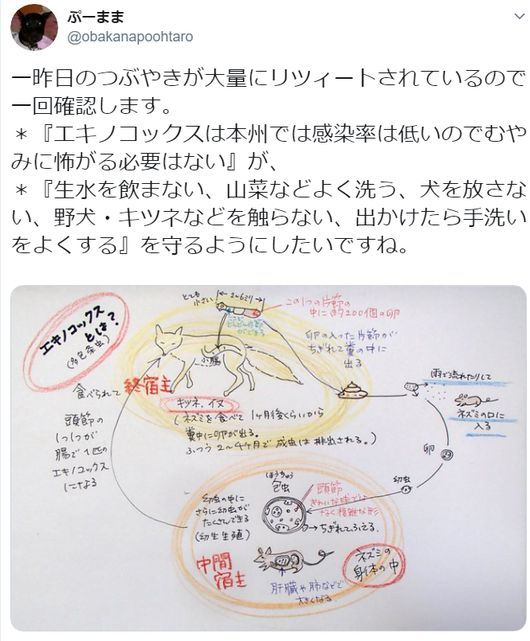 ぷーまま
@obakanapoohtaro
一昨日のつぶやきが大量にリツィートされているので
一回確認します。
＊『エキノコックスは本州では感染率は低いのでむや
みに怖がる必要はない』が、
＊『生水を飲まない、山菜などよく洗う、犬を放さな
い、野犬・キツネなどを触らない、出かけたら手洗い
をよくする』を守るようにしたいですね。
エキノコックス
とは?
(多包条虫)
とても
小さい
2〜6ミリ
この1つの片節の
中に約200個の卵
卵の入った片節が
ちぎれて糞の中に
出る
小腸
雨で流れたりして
ネズミの口に
入る
卵
幼虫
食べられて
終宿主
キツネ、イヌ
(ネズミを食べて1ヶ月後くらいから
糞中に卵が出る。
ふつう2〜4ヶ月で成虫は排出される。)
頭節の
1つ1つが
腸で1匹の
エキノコックス
になる
幼虫の中に
さらに幼虫が
たくさんできる
(幼生生殖)
ほうちゅう
包虫
頭節
ちぎれてふえる。
中間
宿主
ネズミの
身体の中
肝臓や肺などで
大きくなる